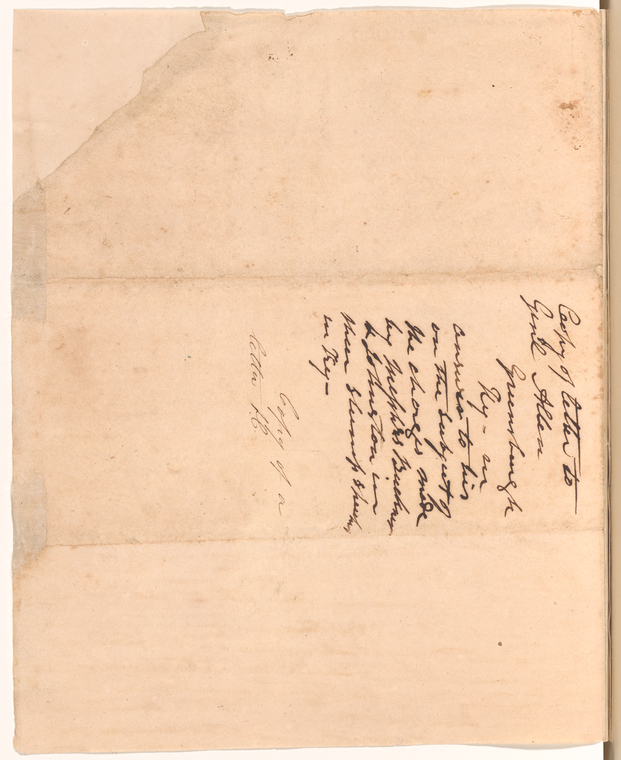 Copy of letter to
Genl Allen
Greensburgh
Ky - in
answer to his
on the subject of
the charges made
by Messrs Buckner
& Johnston in
their stump speeches
in Ky -
Copy of a
letter &c